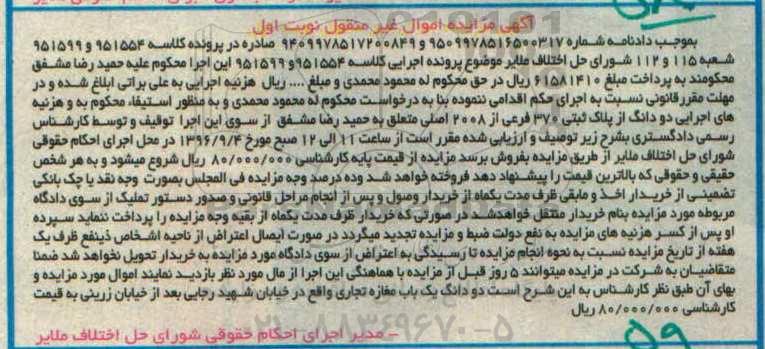 آگهی مزایده اموال غیر منقول نوبت اول
بموجب دادنامه شماره ۹۵۰۹۹۷۸۵۱۶۵۰۰۳۱۷ و ۹۴۰۹۹۷۸۵۱۷۲۰۰۸۴۹ صادره در پرونده کلاسه ۹۵۱۵۵۴ و ۹۵۱۵۹۹
شعبه ۱۱۵ و ۱۱۲ شورای حل اختلاف ملایر موضوع پرونده اجرایی کلاسه ۹۵۱۵۵۴و ۹۵۱۵۹۹ این اجرا محکوم علیه حمید رضا مشفق
محکومند به پرداخت مبلغ ۶۱۵۸۱۴۱۰ ریال در حق محکوم له محمود محمدی و مبلغ .... ریال هزینه اجرایی به علی براتی ابلاغ شده و در
مهلت مقرر قانونی نسبت به اجرای حکم اقدامی ننموده بنا به درخواست محکوم له محمود محمدی و به منظور استیفاء محکوم به و هزینه
های اجرایی دو دانگ از پلاک ثبتی ۳۷۰ فرعی از ۲۰۰۸ اصلی متعلق به حمید رضا مشفق از سوی این اجرا توقیف و توسط کارشناس
رسمی دادگستری بشرح زیر توصیف و ارزیابی شده مقرر است از ساعت ۱۱ الی ۱۲ صبح مورخ ۱۳۹۶/۹/۴ در محل اجرای احکام حقوقی
شورای حل اختلاف ملایر از طریق مزایده بفروش برسد مزایده از قیمت پایه کارشناسی ۸۰/۰۰۰/۰۰۰ ریال شروع میشود و به هر شخص
حقیقی و حقوقی که بالاترین قیمت را پیشنهاد دهد فروخته خواهد شد وده درصد وجه مزایده فی المجلس بصورت وجه نقد یا چک بانکی
تضمینی از خریدار اخذ و مابقی ظرف مدت یکماه از خریدار وصول و پس از انجام مراحل قانونی و صدور دستور تملیک از سوی دادگاه
مربوطه مورد مزایده بنام خریدار منتقل خواهدشد در صورتی که خریدار ظرف مدت یکماه از بقیه وجه مزایده را پرداخت ننماید سپرده
او پس از کسر هزینه های مزایده به نفع دولت ضبط و مزایده تجدید میگردد در صورت ایصال اعتراض از ناحیه اشخاص ذینفع ظرف یک
هفته از تاریخ مزایده نسبت به نحوه انجام مزایده تا رسیدگی به اعتراض از سوی دادگاه مورد مزایده به خریدار تحویل نخواهد شد ضمنا
متقاضیان به شرکت در مزایده میتوانند ۵ روز قبل از مزایده با هماهنگی این اجرا از مال مورد نظر بازدید نمایند اموال مورد مزایده و
بهای آن طبق نظر کارشناس به این شرح است دو دانگ یک باب مغازه تجاری واقع در خیابان شهید رجایی بعد از خیابان زرینی به قیمت
کارشناسی ۸۰/۰۰۰/۰۰۰ ریال
۰۲۱-۸۸۳۴۹۶۷۰-۵
– مدیر اجرای احکام حقوقی شورای حل اختلاف ملایر
۵۹